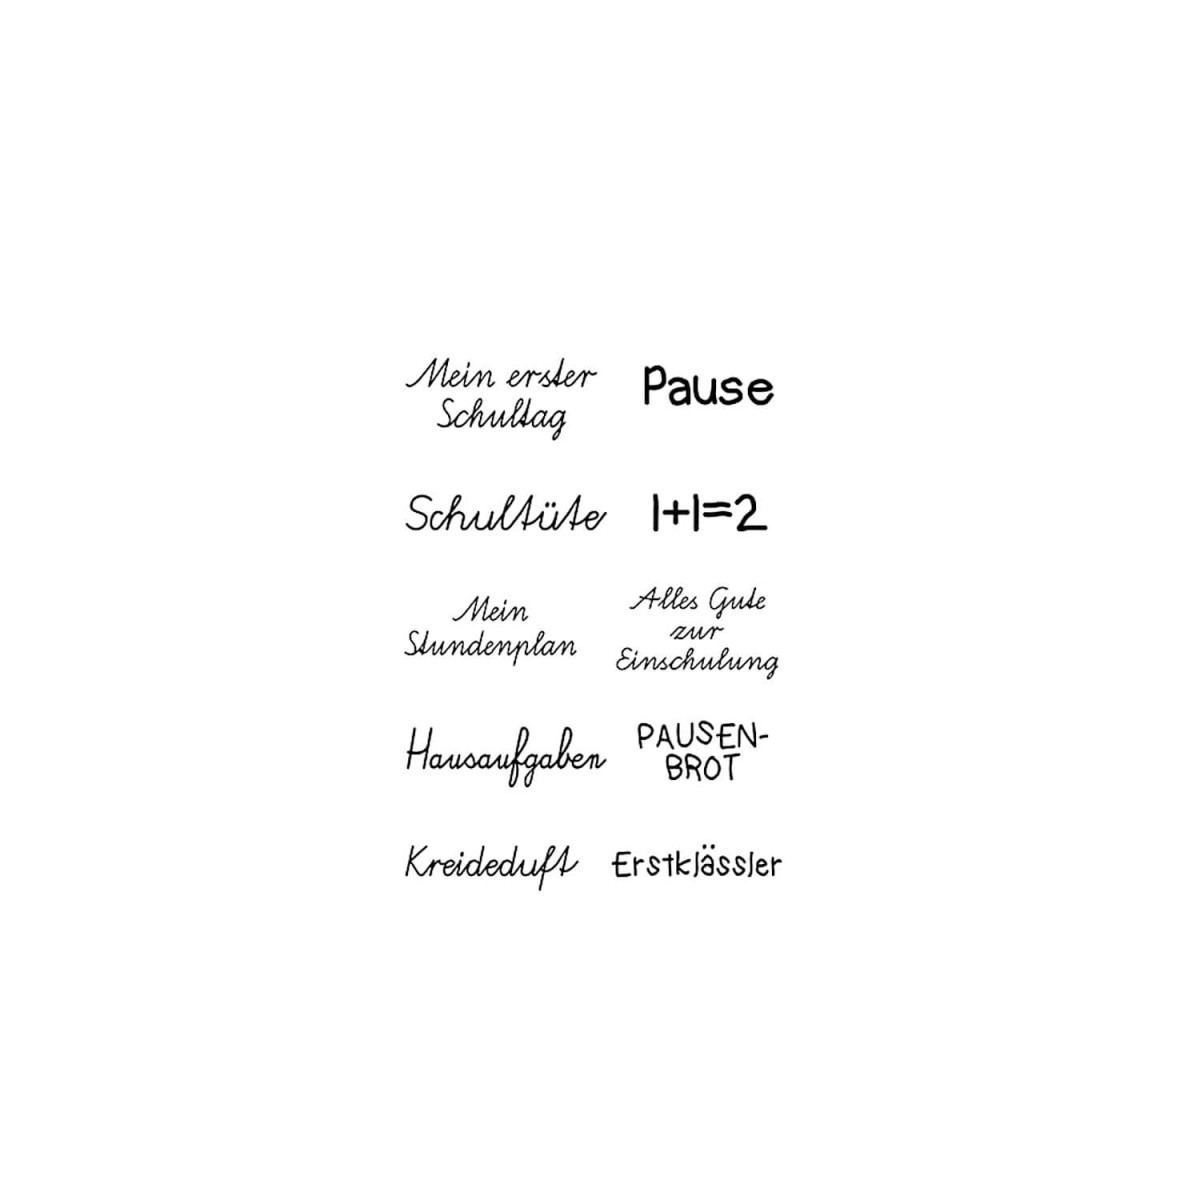 Mein erster
Schultag
Pause
Schultüte
1+1=2
Mein
Stundenplan
Alles Gute
zur
Einschulung
Hausaufgaben
PAUSEN-
BROT
Kreideduft
Erstklässler